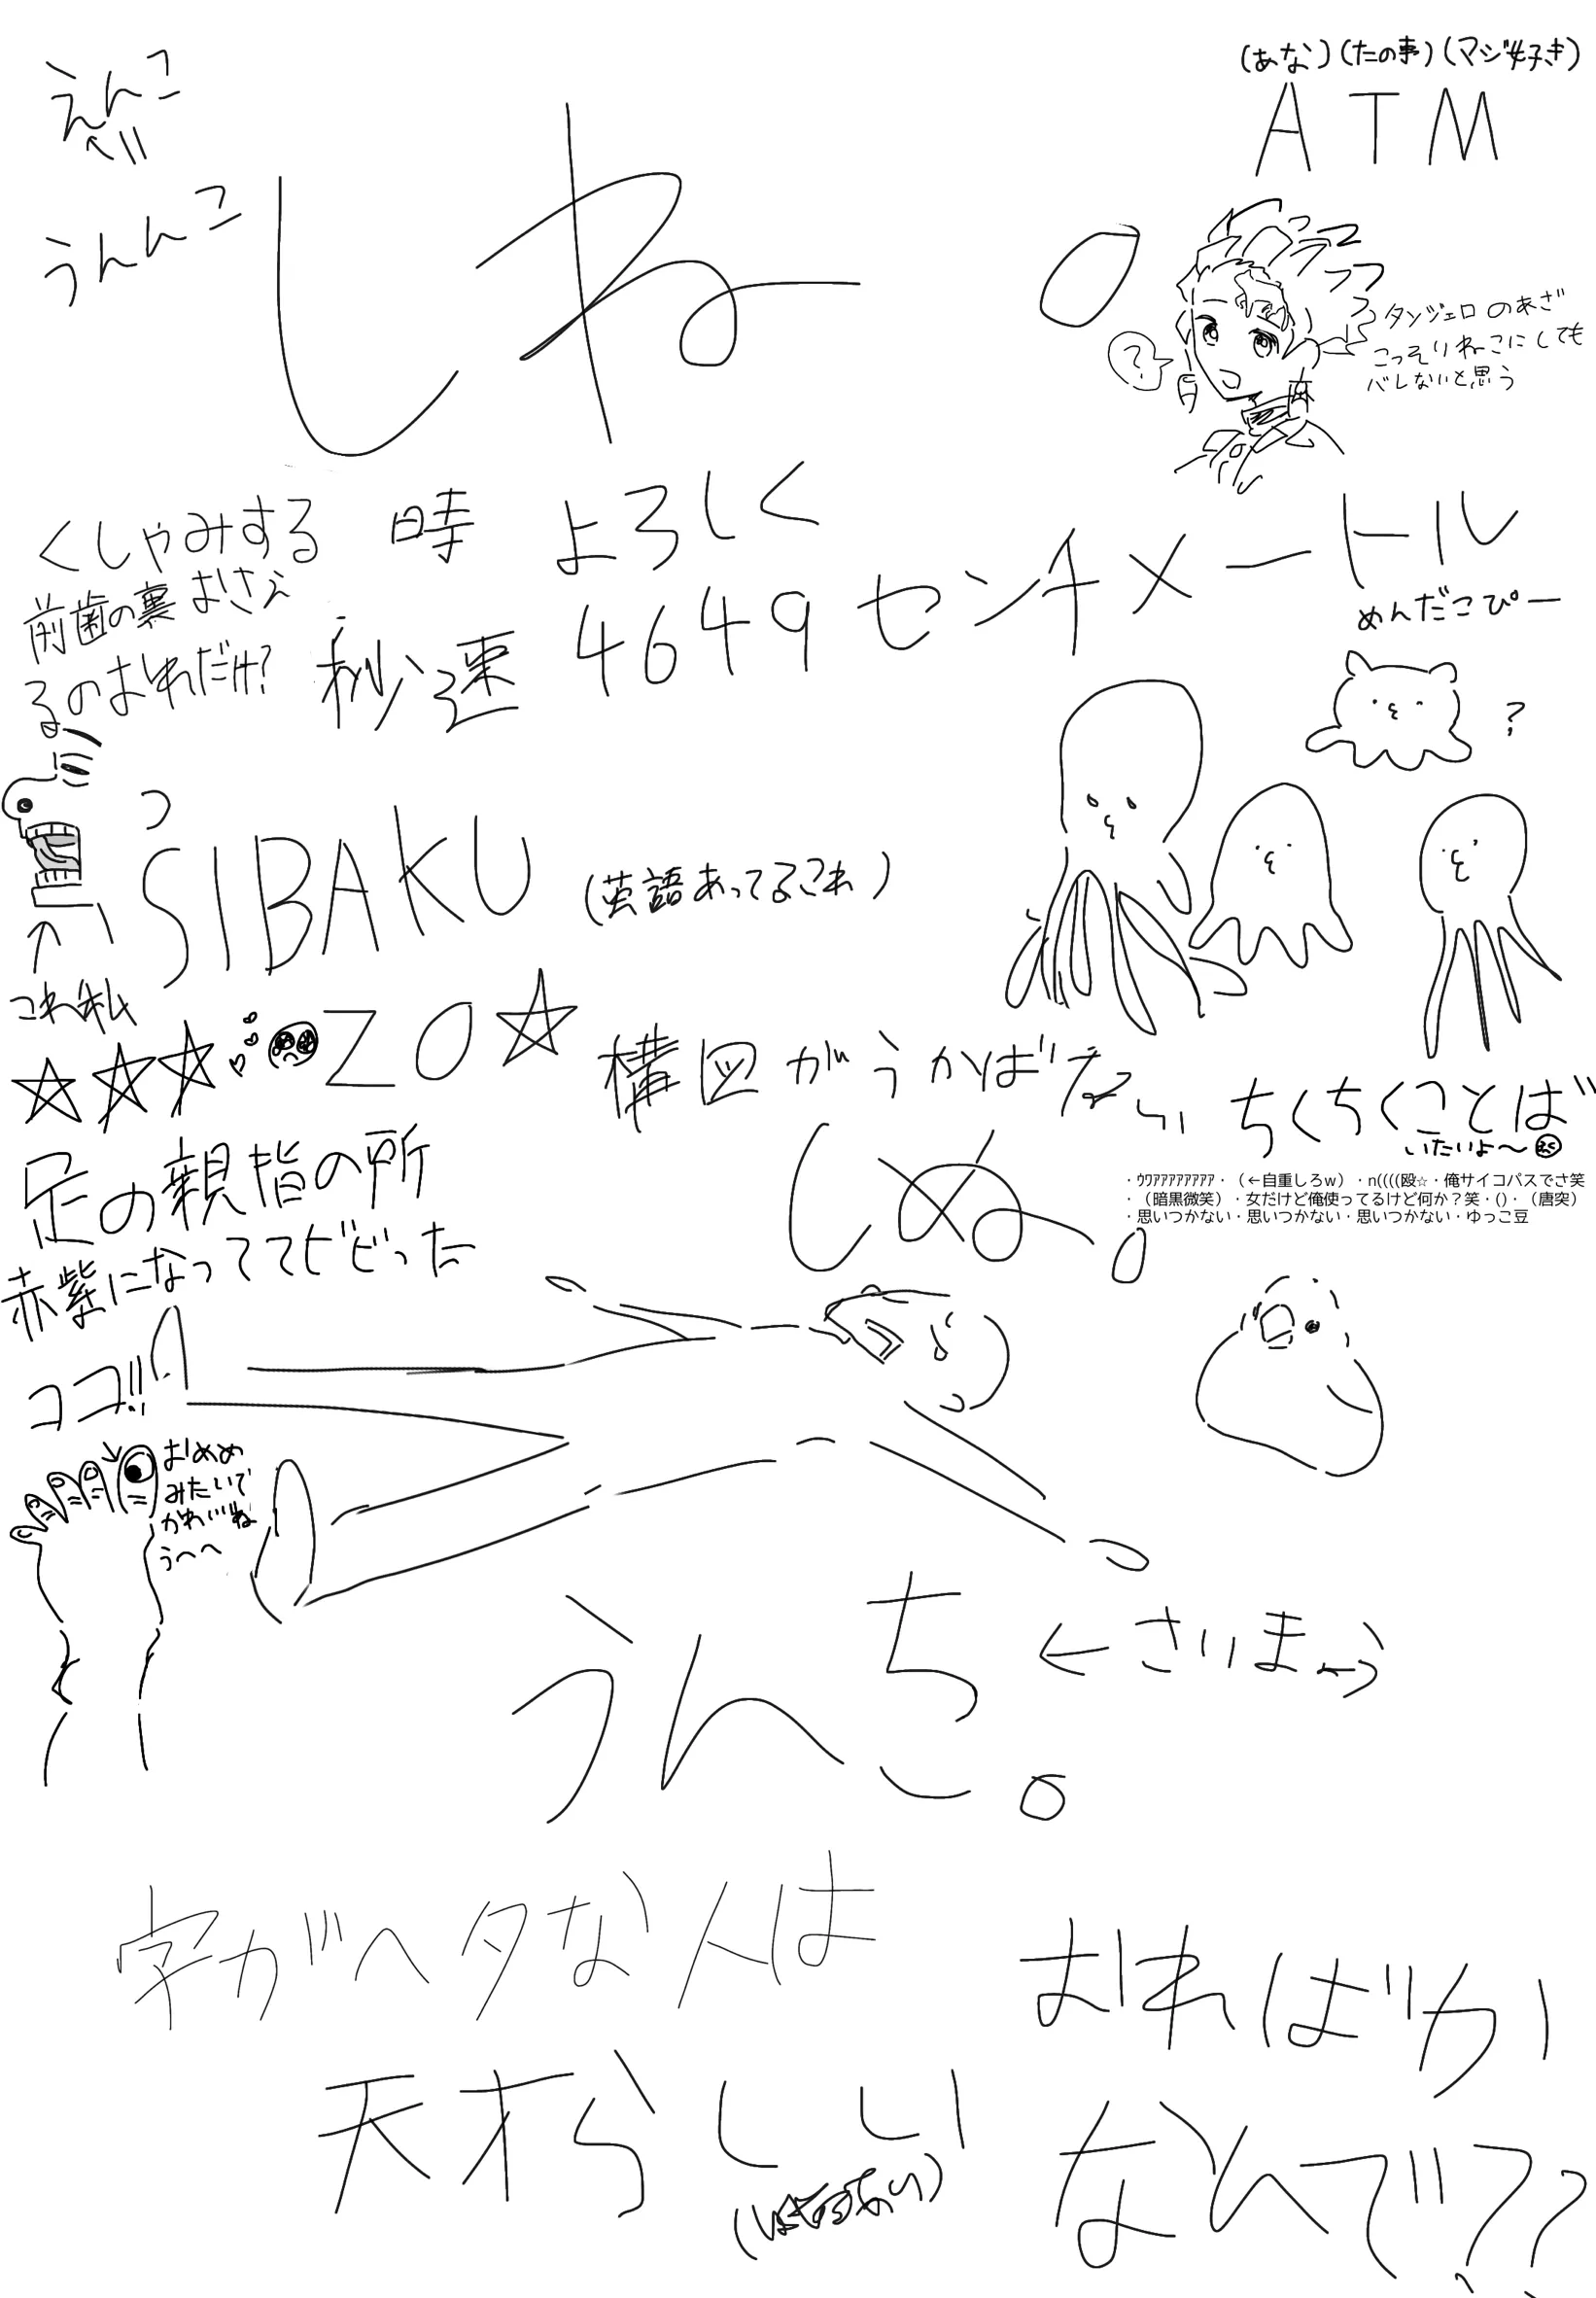 えんこ
うんんこ
しね。
(あな)(たの事)(マジ好き)
ATM
?
タンジェロのあざ
こっそりねこにしても
バレないと思う
くしゃみする時
前歯の裏おさえ
るのおれだけ?
よろしく
秒速4649センチメートル
めんだこぴー
?
SIBAKU
(英語あってるこれ)
これ私
☆☆☆
ZO☆
構図がうかばない
ちくちくことば
いたいよ〜
しぬ。
・ウワアアアアアアアア・（←自重しろw）・n((((殴☆・俺サイコパスでさ笑
・（暗黒微笑）・女だけど俺使ってるけど何か？笑・()・（唐突）
・思いつかない・思いつかない・思いつかない・ゆっこ豆
足の親指の所
赤紫になっててビビった
ココ!!
おめめ
みたいで
かわいいね
うへへ
うんち。
←さいまっう
字がヘタな人は
天才らしい
おればか
なんで??